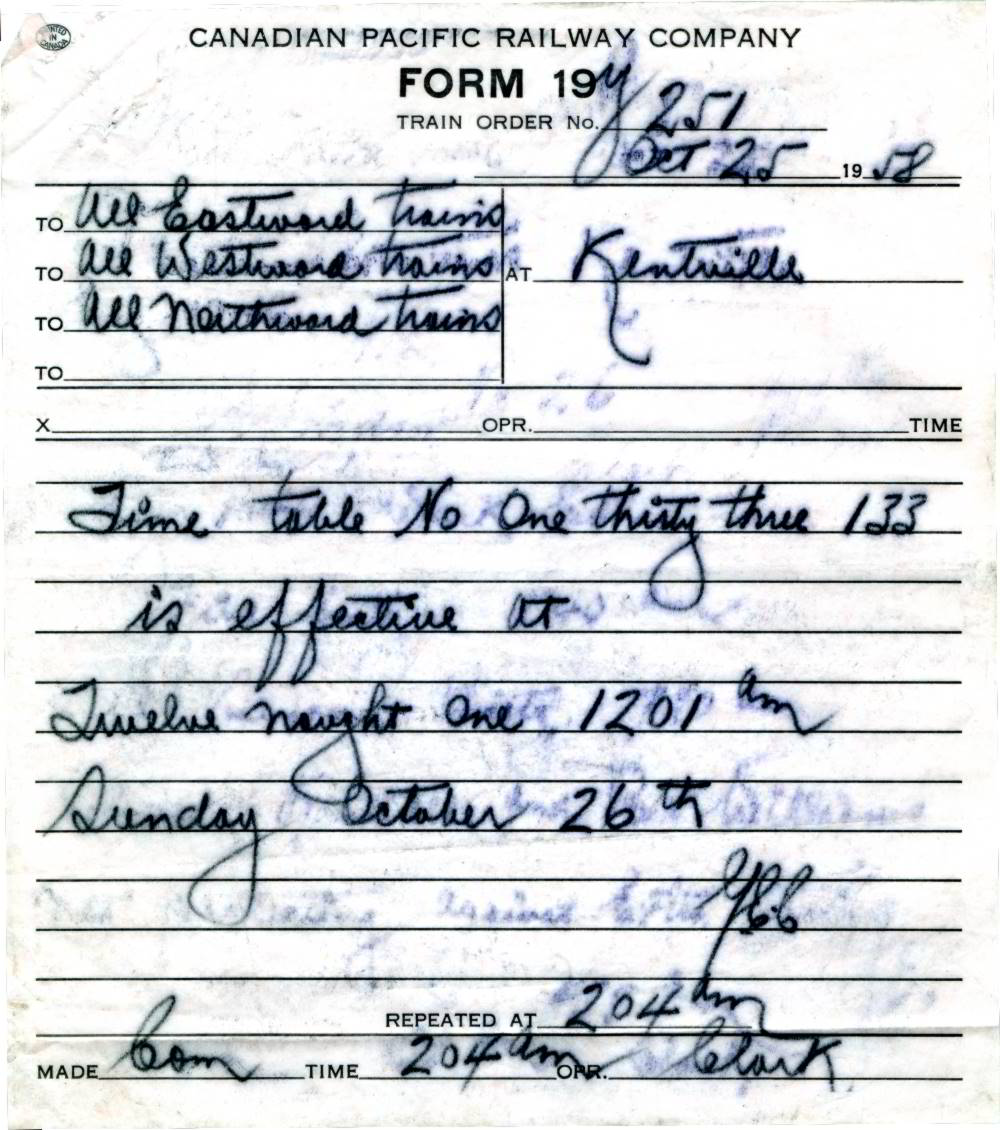 PRINTED IN CANADA
CANADIAN PACIFIC RAILWAY COMPANY
FORM 19 Y
TRAIN ORDER No. 251
Oct 25 19 58
TO All Eastward trains
TO All Westward trains AT Kentville
TO All Northward trains
TO
X OPR. TIME
Time table No One thirty three 133
is effective at
Twelve nought One 1201 am
Sunday October 26th
REPEATED AT 204 am
MADE Com TIME 204 am OPR. Clark